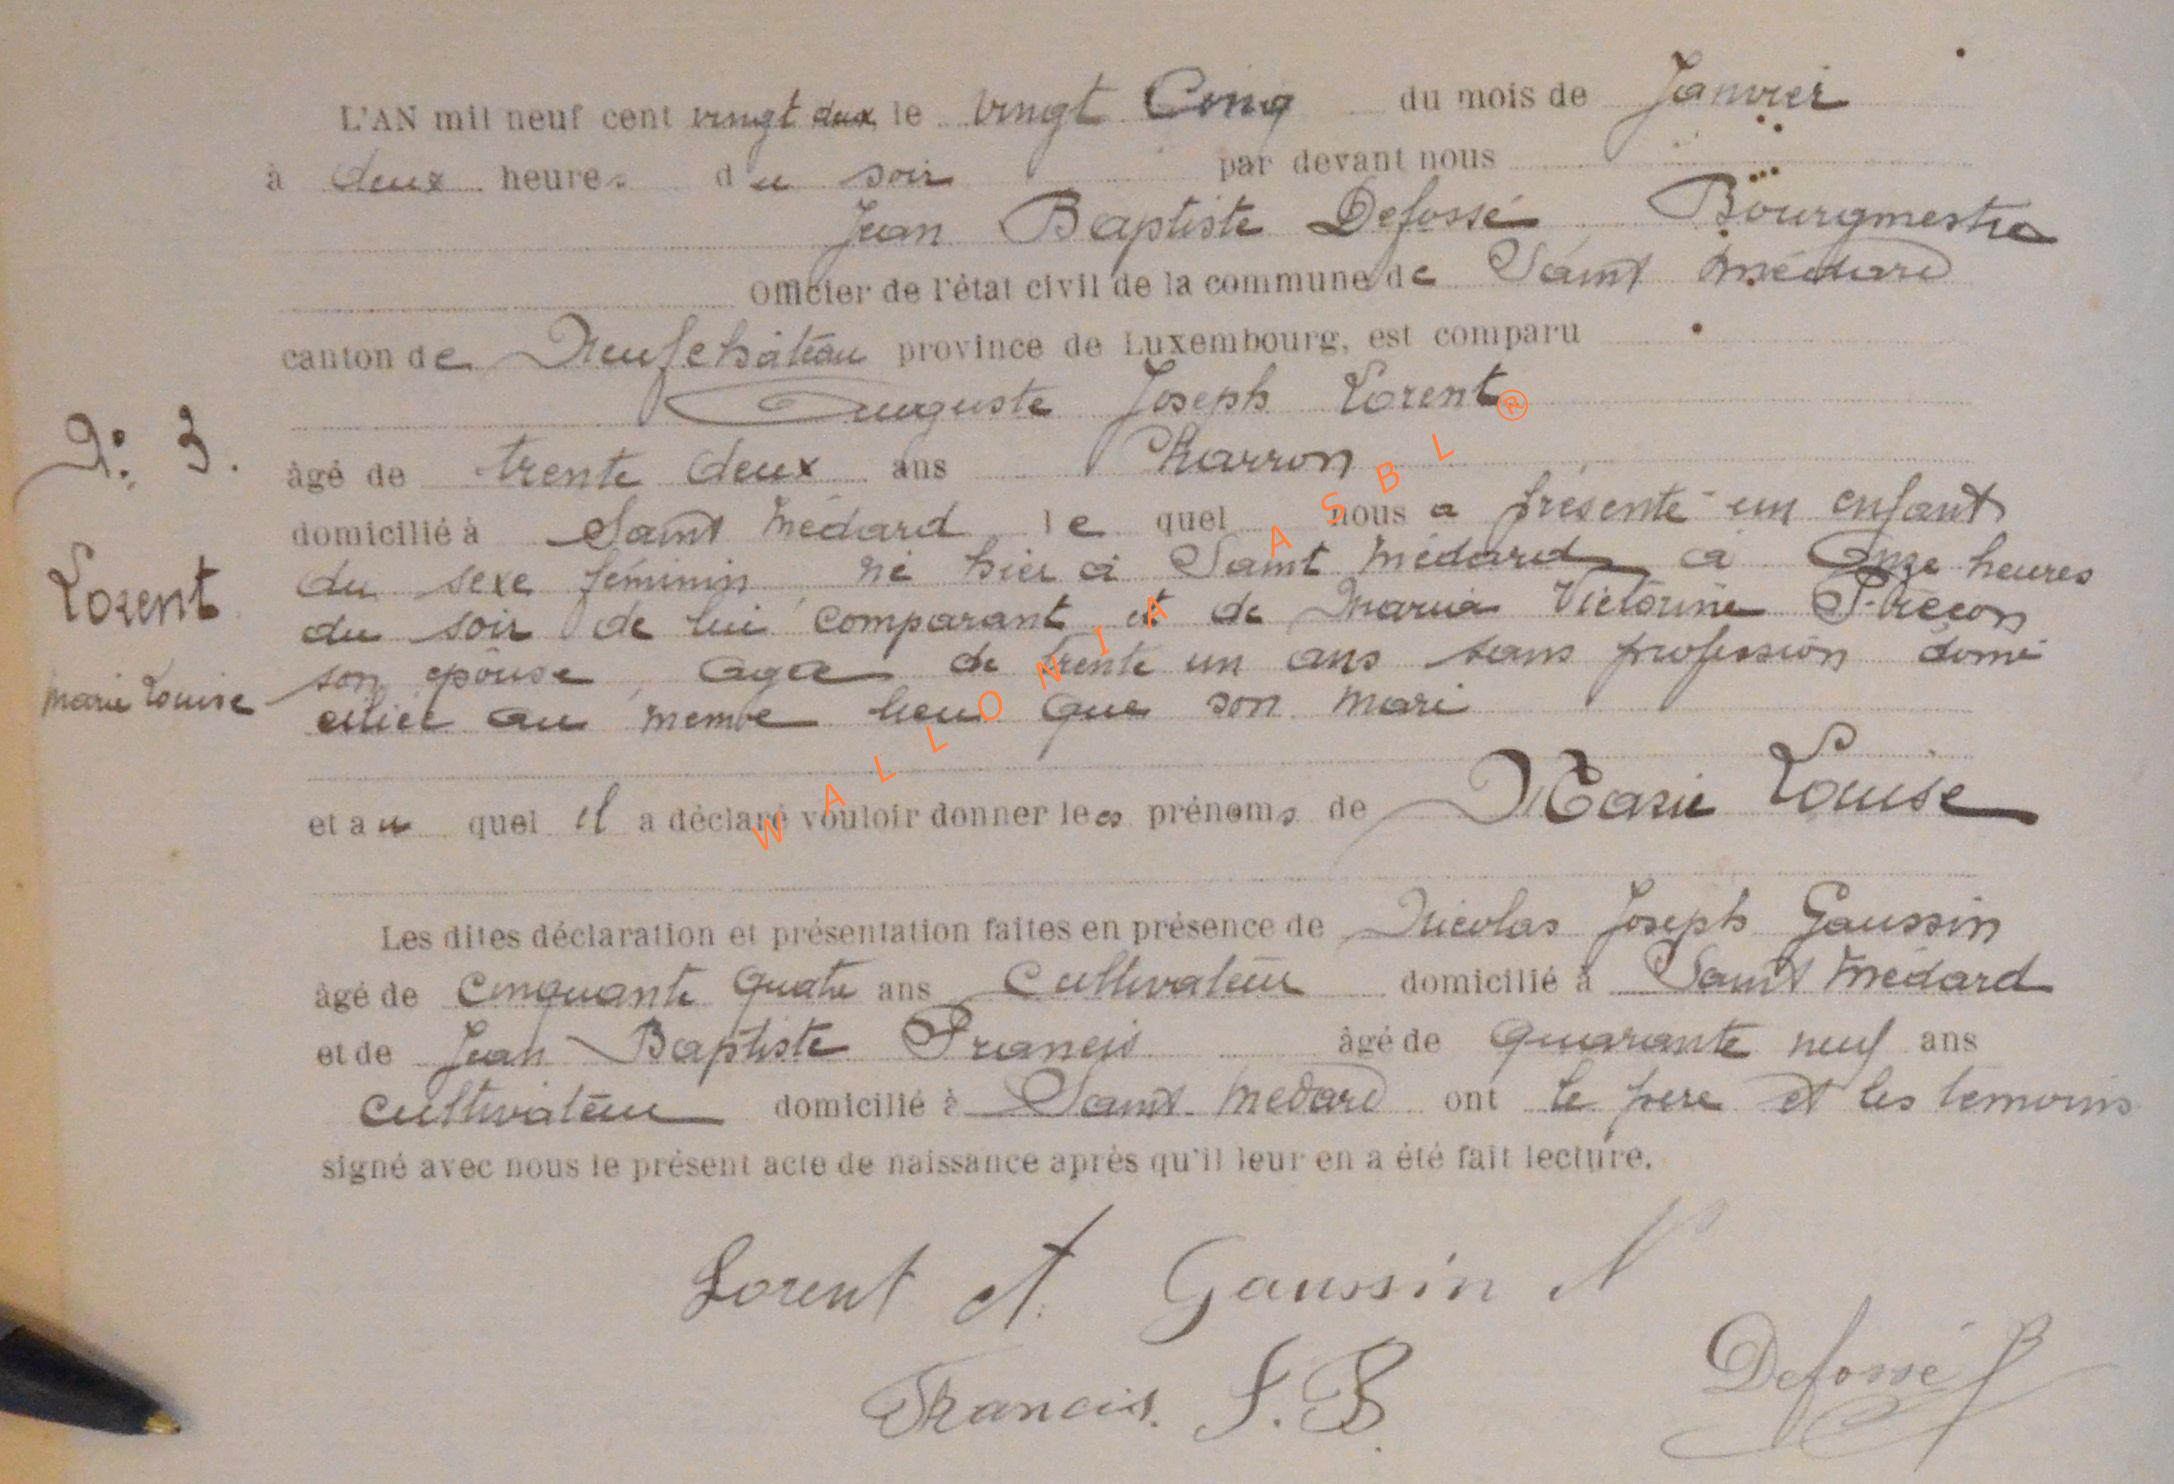 L'AN mil neuf cent vingt deux le vingt Cinq du mois de Janvier
à deux heures du soir par devant nous
Jean Baptiste Defossé Bourgmestre
Officier de l'état civil de la commune de Saint Médard
canton de Neufchâteau province de Luxembourg, est comparu
Auguste Joseph Lorent
N° 3.
âgé de trente deux ans Charron
domicilié à Saint Médard le quel nous a présenté un enfant
du sexe féminin né hier à Saint Médard à Onze heures
Lorent
du soir de lui comparant et de Maria Victorine
son épouse agée de trente un ans sans profession domi
Marie Louise
ciliée au même lieu que son mari
et au quel il a déclaré vouloir donner les prénoms de Marie Louise
Les dites déclaration et présentation faites en présence de Nicolas Joseph Gaussin
âgé de Cinquante quatre ans Cultivateur domicilié à Saint Médard
et de Jean Baptiste Francis âgé de quarante neuf ans
cultivateur domicilié à Saint Médard ont le père et les témoins
signé avec nous le présent acte de naissance après qu'il leur en a été fait lecture.
Lorent A. Gaussin N
Francis. J. B. Defossé JB
WALLONIA ASBL ®